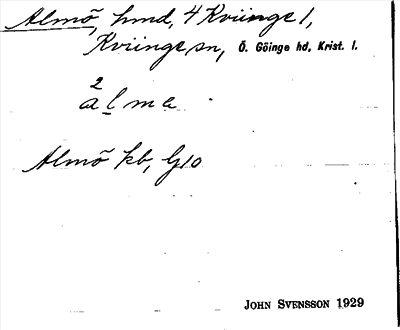 Almö, hmd, 4 Kviinge 1,
Kviinge sn, Ö. Göinge hd, Krist. l.
2
a l m a
Almö kb, G10
JOHN SVENSSON 1929